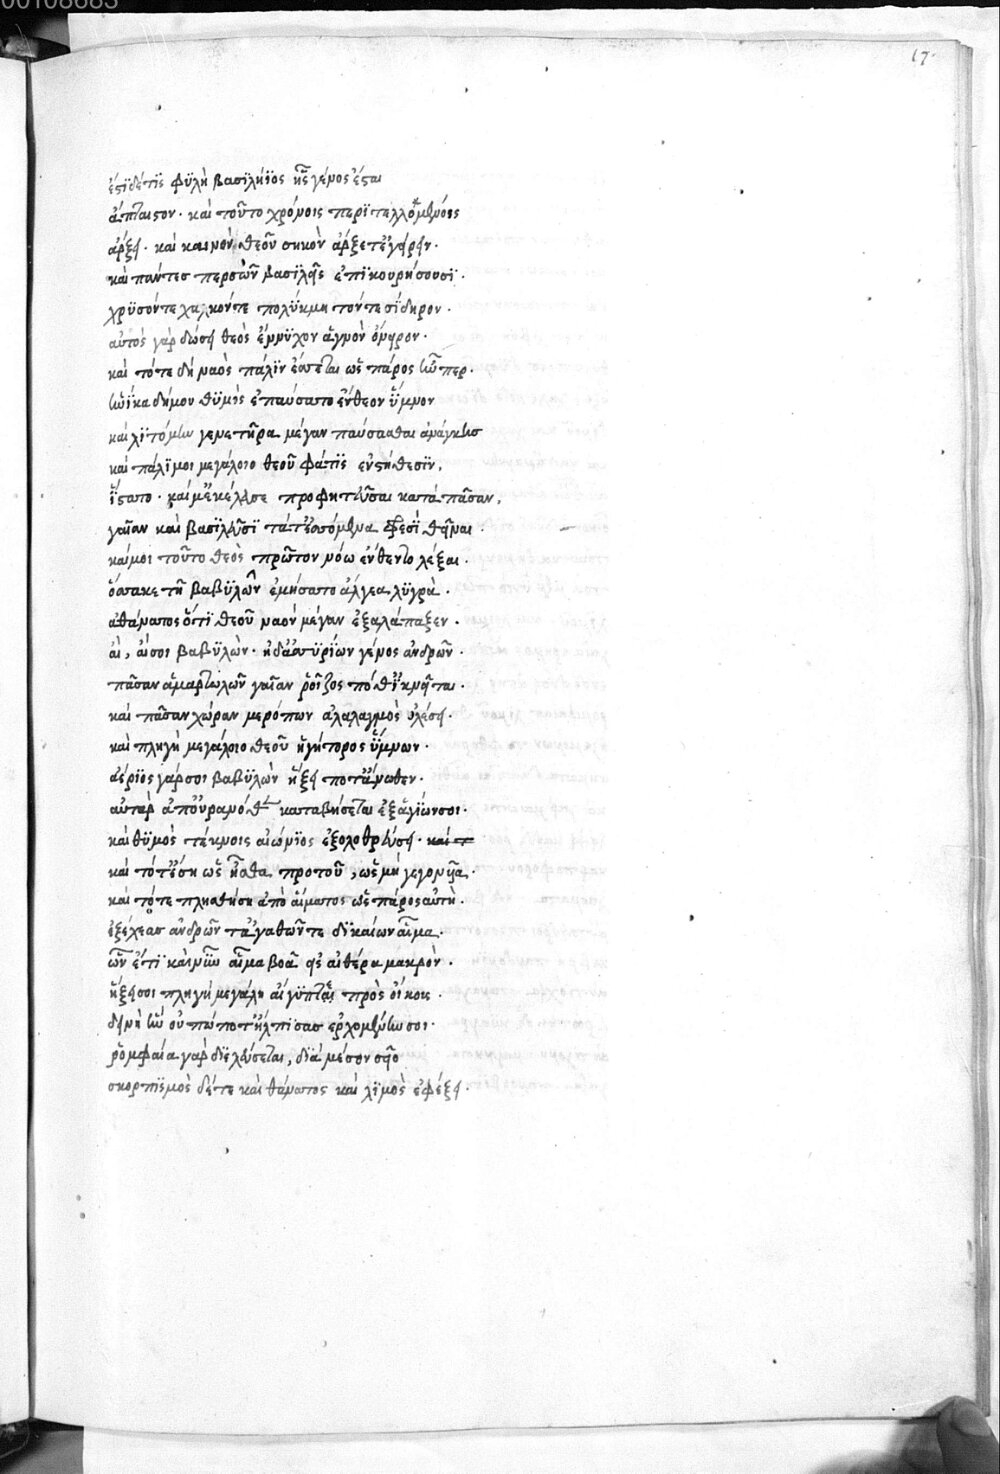 00108683
17.
ἐςϊ δέτις φϋλὴ βασϊλήϊος ἧς γένος ἔςαι
ἄπταιςον · καὶ τοῦτο χρόνοις περϊτελλομένοις
ἄρξει · καὶ καινὸν θεοῦ σηκὸν ἄρξετ' ἐγείρειν ·
καὶ πάντεσ περσῶν βασϊλεῖς ἐπϊκουρήσουσϊ ·
χρϋσόντε χαλκόντε πολϋκμητόντε σίδηρον ·
αὐτὸς γὰρ δώσει θεὸς ἔννϋχον ἁγνὸν ὄνειρον ·
καὶ τότε δὴ ναὸς πάλϊν ἔσσεται ὡς πάρος ἦν περ ·
ἡνίκα δή μου θϋμὸς ἐπαύσατο ἔνθεον ὕμνον
καὶ λϊτόμην γενετῆρα μέγαν παύσασθαι ἀνάγκησ
καὶ πάλϊ μοι μεγάλοιο θεοῦ φάτϊς ἐν ςήθεσϊν,
ἵςατο · καί μ' ἐκέλευσε προφητεῦσαι κατὰ πᾶσαν,
γαῖαν καὶ βασϊλεῦσϊ τά τ' ἐσσόμενα φρεσὶ θεῖναι ·
καί μοι τοῦτο θεὸς πρῶτον νόω ἔνθετο λέξαι ·
ὅσσακε τῆ βαβϋλῶνϊ ἐμήσατο ἄλγεα λϋγρὰ ·
ἀθάνατος ὅτϊ θεοῦ ναὸν μέγαν ἐξαλάπαξεν ·
αἲ, αἴ σοι βαβϋλὼν · ἠδ' ἀσσϋρίων γένος ἀνδρῶν ·
πᾶσαν ἁμαρτωλῶν γαῖαν ῥοῖζος πόθ' ἱκνεῖται ·
καὶ πᾶσαν χώραν μερόπων ἀλαλαγμὸς ὀλέσει ·
καὶ πληγὴ μεγάλοιο θεοῦ ἡγήτορος ὕμνων ·
ἀέρϊος γάρ σοι βαβϋλὼν ἥξει ποτ' ἄνωθεν ·
αὐτὰρ ἀπ' οὐρανόθεν καταβήσεται ἐξ ἁγίων σοι ·
καὶ θϋμὸς τέκνοις αἰώνϊος ἐξολοθρεύσει · καὶ τ
καὶ τότ' ἔσῃ ὡς ἦσθα προτοῦ, ὡς μὴ γεγονυῖα ·
καὶ τότε πλησθήσῃ ἀπὸ αἵματος ὡς πάρος αὐτὴ ·
ἐξέχεασ ἀνδρῶν τ' ἀγαθῶν τε δϊκαίων αἷμα ·
ὧν ἔτϊ καὶ νῦν αἷμα βοᾶ εἰς αἰθέρα μακρὸν ·
ἥξει σοι πληγὴ μεγάλη αἴγϋπτε πρὸς οἴκους ·
δεινὴ ἣν οὔ πώ ποτ' ἤλπϊσασ ἐρχομένην σοι ·
ῥομφαία γὰρ δϊελεύσεται, δϊὰ μέσον σεῖο
σκορπϊσμὸς δέ τε καὶ θάνατος καὶ λϊμὸς ἐφέξει ·